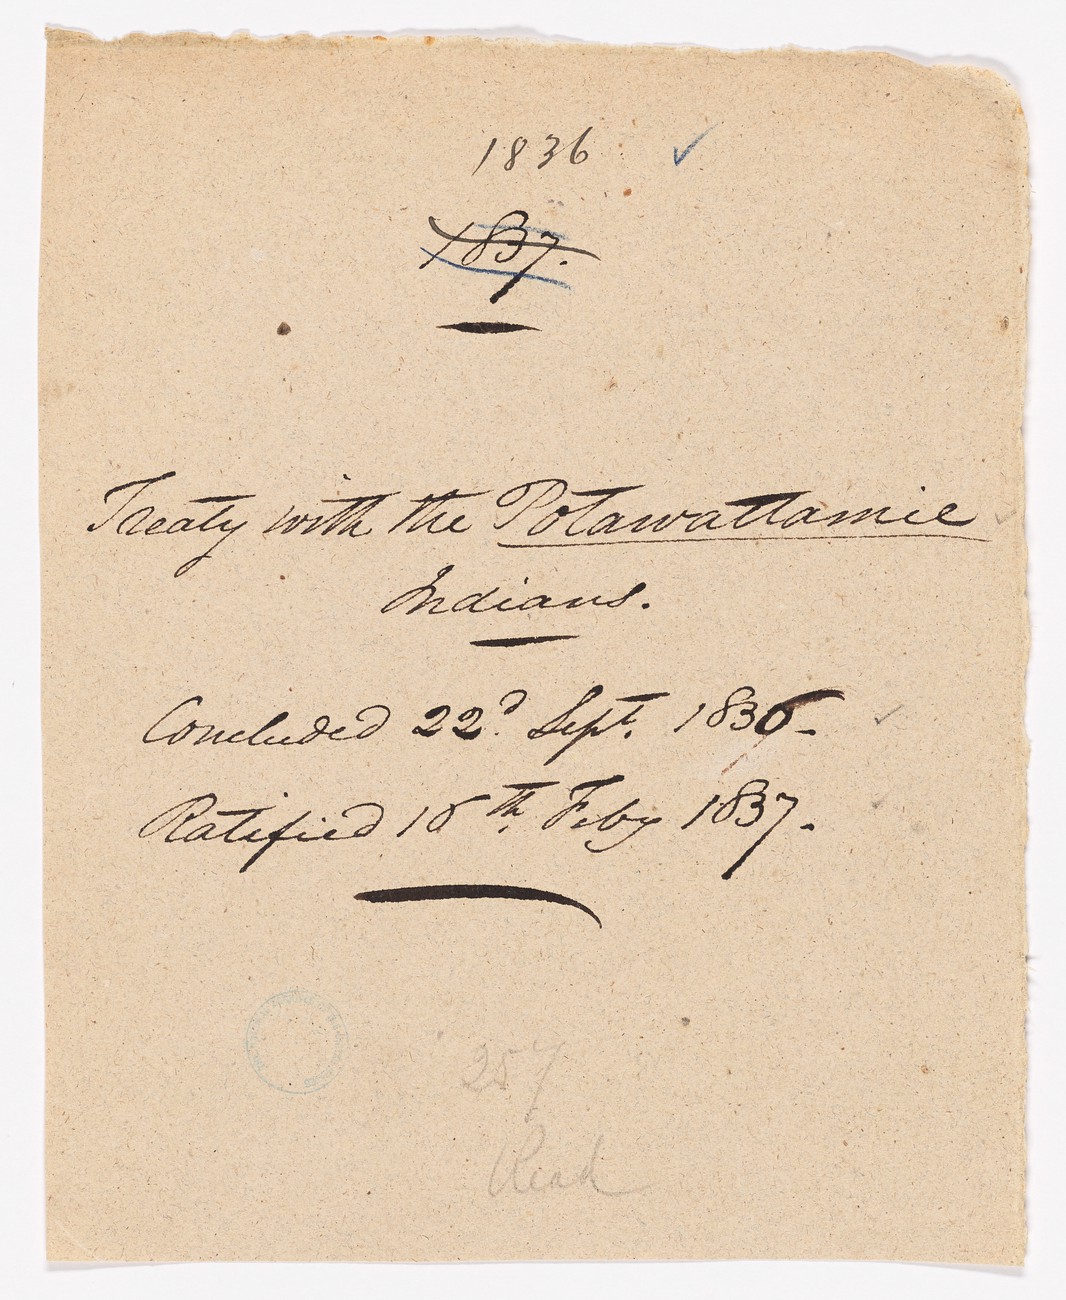 1836 ✓
1837.
Treaty with the Potawattamie
Indians.
Concluded 22d. Sept. 1836.
Ratified 18th. Feby 1837.
257
Read